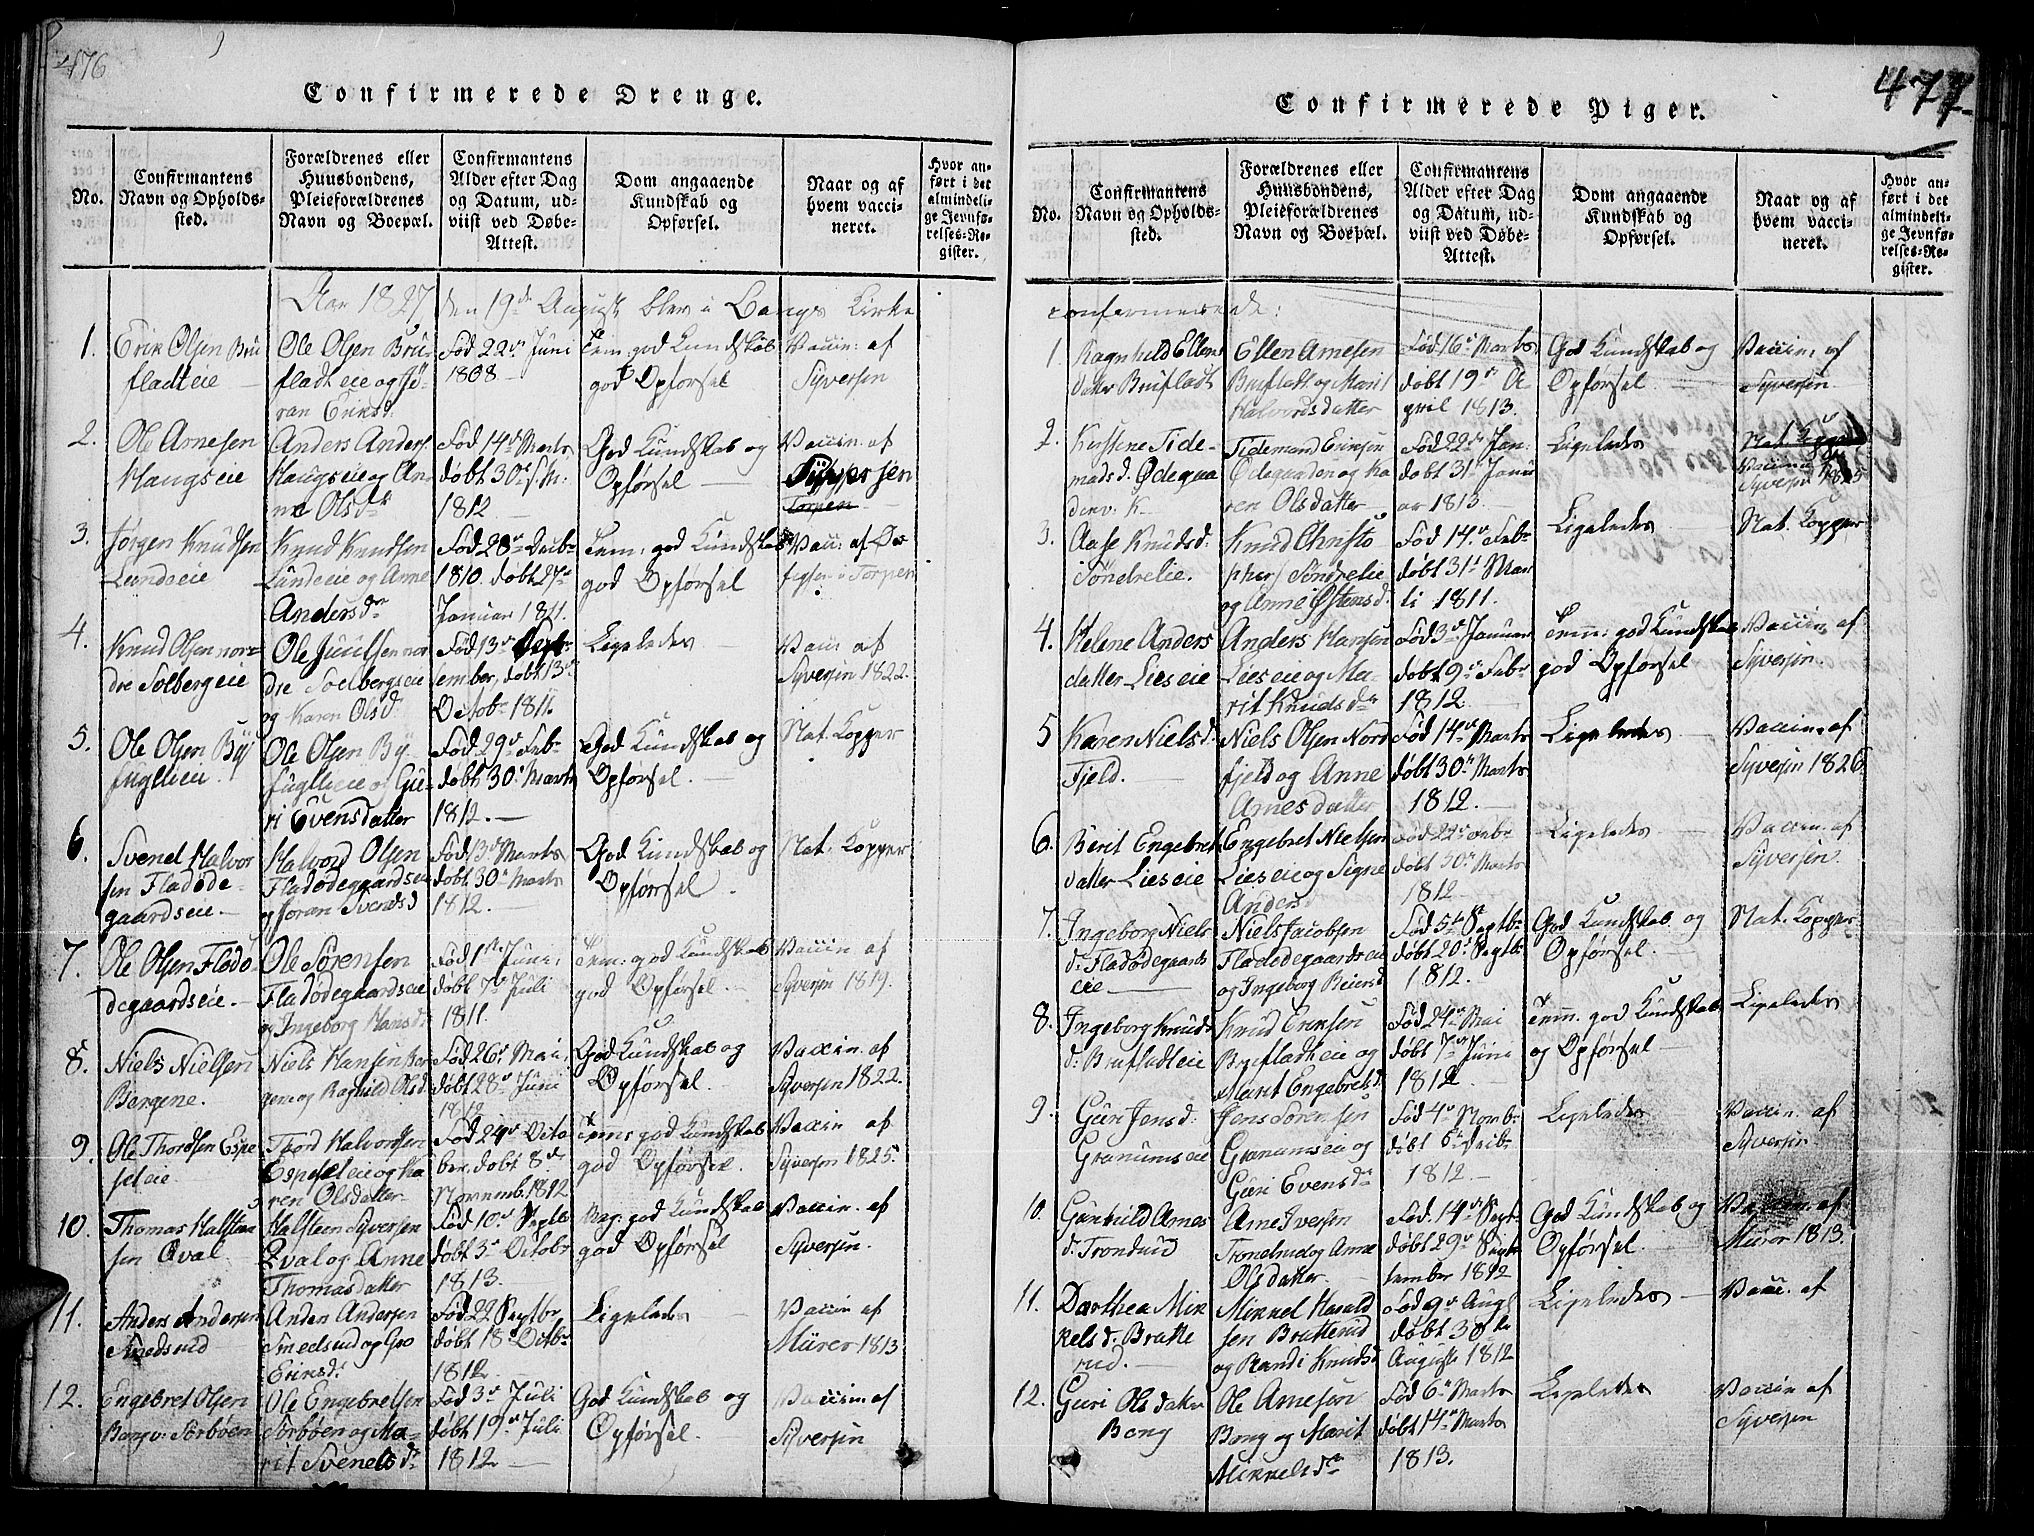 476
Confirmerede Drenge.
No.
Confirmantens
Navn og Opholds-
sted.
Forældrenes eller
Huusbondens,
Pleieforældrenes
Navn og Boepæl.
Confirmantens
Alder efter Dag
og Datum, ud-
viist ved Døbe-
Attest.
Dom angaaende
Kundskab og
Opførsel.
Naar og af
hvem vacci-
neret.
Hvor an-
ført i det
almindeli-
ge Jevnfø-
relses-Re-
gister.
Aar 1827 den 19de August blev i Bangs Kirke
1.
Erik Olsen Bru
fladteie
Ole Olsen Bru
fladteie og Jø-
ran Eriksd.
Fød 22de Juni
1808
Tem: god Kundskab
god Opførsel
Vaccin: af
Syversen
2.
Ole Arnesen
Haugseie
Anders Anders.
Haugseie og An-
ne Olsdr
Fød 14de Marts
døbt 30te s. M.
1812
God Kundskab og
Opførsel
Vaccin. af
Syversen
Torpen
3.
Jørgen Knudsen
Lundeeie
Knud Knudsen
Lundeeie og Anne
Andersdr
Fød 28de Decbr
1810. døbt 27de
Januar 1811.
Tem: god Kundskab
god Opførsel
Vacci: af
i Torpen
4.
Knud Olsen nor-
dre Solbergeie
Ole Juulsen nor
dre Soelbergseie
og Karen Olsd.
Fød 13de Sept-
tember, døbt 13de
Octobr 1811.
Ligeledes
Vacci af
Syversen 1822.
5.
Ole Olsen By
fuglieie.
Ole Olsen By-
fuglieie og Gu-
ri Evensdatter
Fød 29de Feb-
døbt 30te Marts
1812.
God Kundskab og
Opførsel.
Nat. Kopper
6.
Svend Halvor
sen Fladøde-
gaardseie.
Halvord Olsen
Fladødegaardseie
og Joran Svendsd
Fød 13de Marts
døbt 30te Marts
1812.
God Kundskab og
Opførsel.
Nat. Kopper
7.
Ole Olsen Flado-
degaardseie.
Ole Sørensen
Fladødegaardseie
og Ingeborg Hansd.
Fød 1ste Juni,
døbt 7de Juli
1811.
Tem: god Kundskab
god Opførsel.
Vaccin af
Syversen 1819.
8.
Niels Nielsen
Bergene.
Niels Hansen Ber
gene og Ragnild Olsd.
Fød 26de Mai,
døbt 28de Juni
1812
God Kundskab og
Opførsel.
Vaccin. af
Syversen 1822.
9.
Ole Thordsen Espe
seteie
Thord Halvorsen
Espeseteie og Ka
ren Olsdatter
Fød 24de Octo
ber. døbt 8de
Novemb. 1812
Tem: god Kundskab
god Opførsel.
Vaccin af
Syversen 1825.
10.
Thomas Halsteen
sen Qval
Halsteen Syversen
Qval og Anne
Thomasdatter
Fød 10de Septb
døbt 3de Octobr
1813.
Meg. god Kundskab
god Opførsel
Vaccin. af
Syversen.
11.
Anders Andersen
Smedsrud
Anders Andersen
Smedsrud og Gro
Eriksd.
Fød 22 Septbr
døbt 18de Octbr
1812.
Ligeledes
Vaccin af
Mürer 1813
12.
Engebret Olsen
Bang v: Sørbøen
Ole Engebretsen
Sørbøen og Ma-
rit Svendsdr
Fød 3de Juli
døbt 19de Juli
1812
God Kundskab og
Opførsel.
Vaccin. af
Syversen
477
Confirmerede Piger.
No.
Confirmantens
Navn og Opholds-
sted.
Forældrenes eller
Huusbondens,
Pleieforældrenes
Navn og Boepæl.
Confirmantens
Alder efter Dag
og Datum, ud-
viist ved Døbe-
Attest.
Dom angaaende
Kundskab og
Opførsel.
Naar og af
hvem vacci-
neret.
Hvor an-
ført i det
almindeli-
ge Jevnfø-
relses-Re-
gister.
confermerede:
1.
Ragnhild Ellens
datter Brufladt
Ellen Arnesen
Brufladt og Marit
Halvordsdatter
Fød 16de Marts
døbt 19de A-
pril 1813.
God Kundskab og
Opførsel
Vaccin. af
Syversen.
2.
Kirstine Tide-
mandsd. Ødegaa
Tidemand Eriksen
Ødegaarden og Ka
ren Olsdatter
Fød 22de Jan.
døbt 31te Janu
ar 1813
Ligeledes
Nat. Kopper
Vaccin af
Syversen 1825
3.
Aase Knudsd.
Søndrelie.
Knud Christo
phers. Søndrelie
og Anne Østensd.
Fød 14de Febr
døbt 31te Mar
ti 1811.
Ligeledes
Nat. Kopper
4.
Helene Anders
datter Lieseie
Anders Hansen
Lieseie og Ma-
rit Knudsdr
Fød 3de Januar
døbt 9de Febr
1812
Temm: god Kundskab
god Opførsel
Vaccin. af
Syversen.
5
Karen Nielsd.
Fjeld.
Niels Olsen Nord
fjeld og Anne
Arnesdatter
Fød 14de Marts
døbt 30te Marts
1812.
Ligeledes
Vaccin. af
Syversen 1826
6.
Berit Engebret
datter Lieseie
Engebret Nielsen
Lieseie og Signe
Andersd
Fød 22de Febr
døbt 30te Marts
1812
Ligeledes
Vaccin. af
Syversen.
7.
Ingeborg Niels
d. Fladødegaards
eie
Niels Jacobsen
Fladødegaardseie
og Ingeborg Reiersd
Fød 5te Septbr
døbt 20de Septbr
1812.
God Kundskab og
Opførsel.
Nat. Kopper
8.
Ingeborg Knuds
d: Brufladteie
Knud Eriksen
Brufladteie og
Marit Engebretsd.
Fød 24de Mai
døbt 7de Juni
1812
Temm. god Kundskab
og Opførsel
Ligeledes
9.
Guri Jensd.
Granumseie
Jens Sørensen
Granumseie og
Guri Evensdr
Fød 4de Novmb.
døbt 6te Decbr
1812
Ligeledes
Vaccin. af
Syversen
10.
Gunhild Arnes
d. Tronrud
Arne Iversen
Tronrud og Anne
Olsdatter
Fød. 14de Sept
døbt 29de Sept
tember 1812
God Kundskab og
Opførsel.
Vaccin. af
Mürer 1813.
11.
Dorthea Mik
kelsd. Bratte
rud.
Mikkel Harald
sen Bratterud
og Randi Knudsd
Fød 9de Aug.
døbt 30te
Augusti 1812
Ligeledes
Vacci. af
12.
Guri Olsdater
Bang
Ole Arnesen
Bang og Marit
Mikkelsdr
Fød 6te Marts
døbt 14de Marts
1813.
Ligeledes
Vaccin af
Syversen